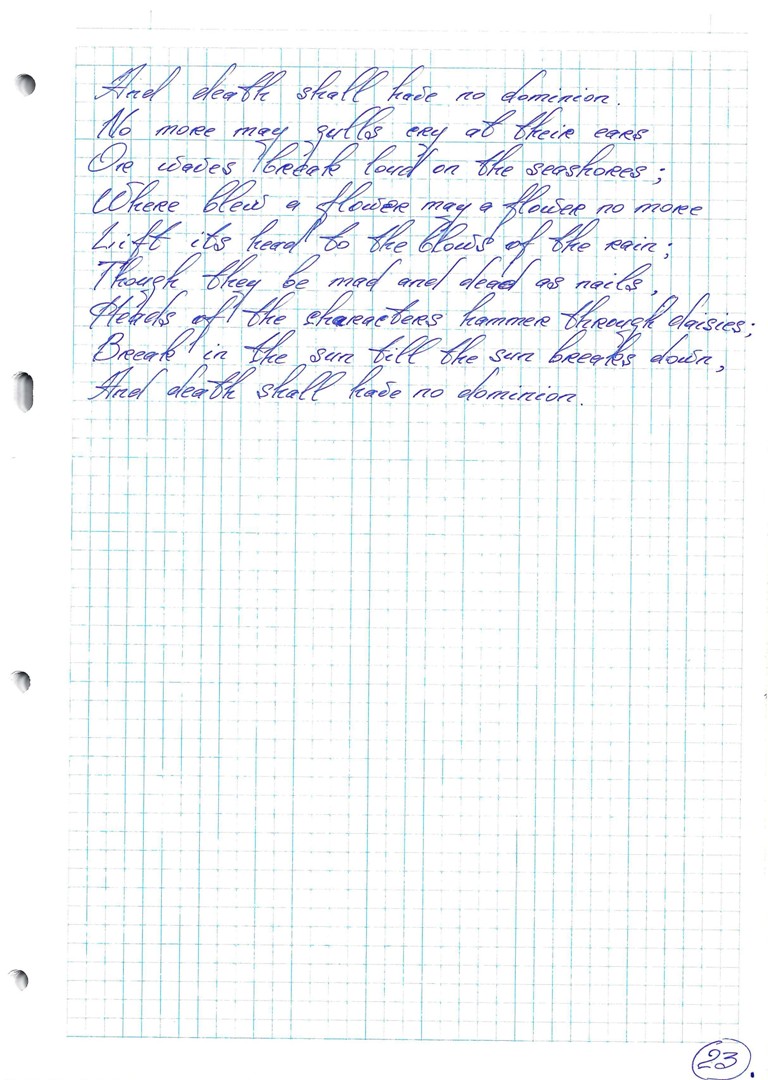 And death shall have no dominion.
No more may gulls cry at their ears
Or waves break loud on the seashores;
Where blew a flower may a flower no more
Lift its head to the blows of the rain;
Though they be mad and dead as nails,
Heads of the characters hammer through daisies;
Break in the sun till the sun breaks down,
And death shall have no dominion.
23.